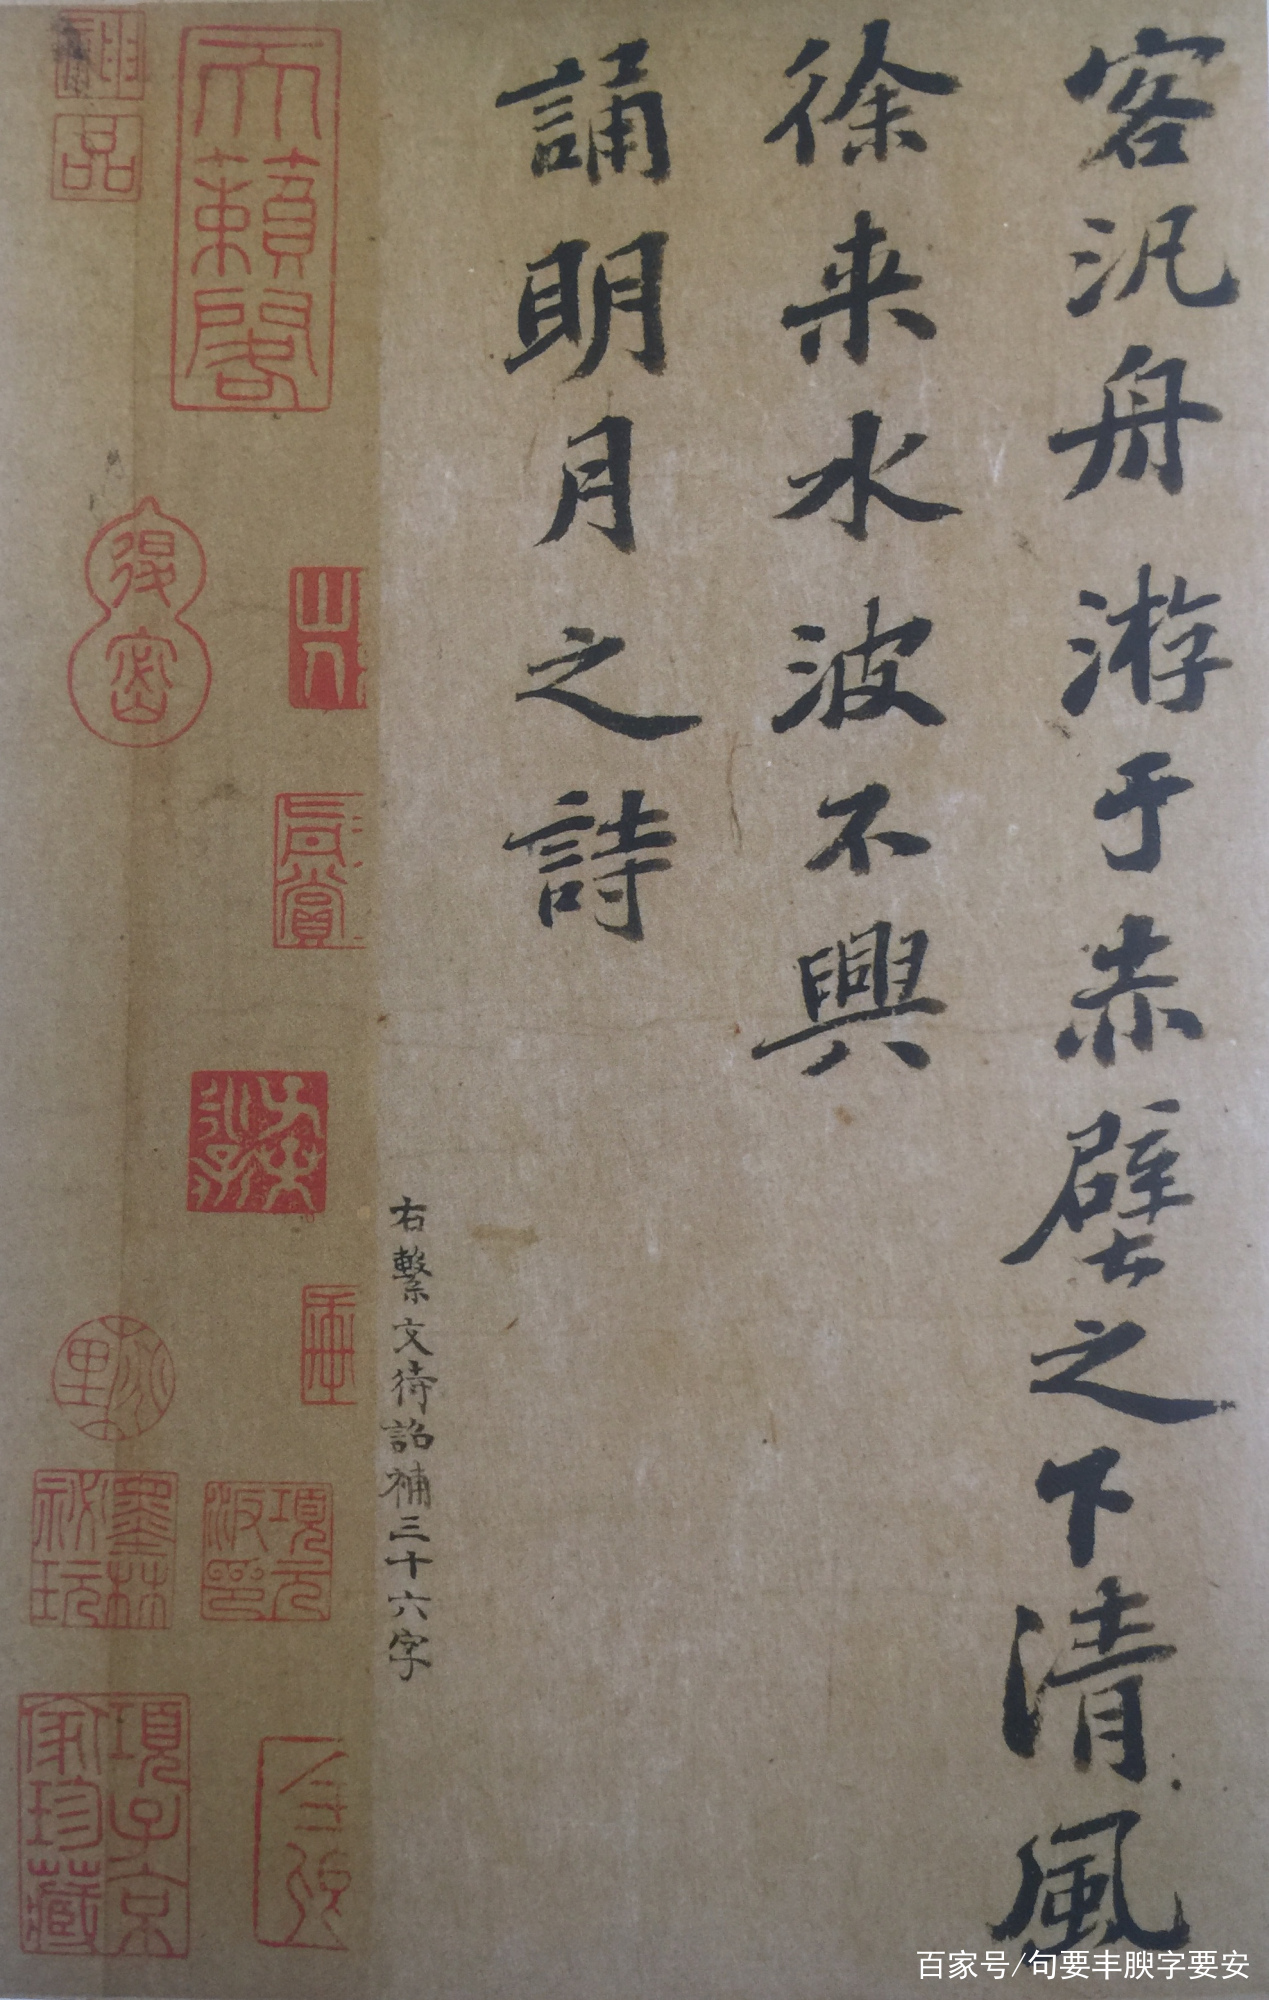 客汎舟游于赤壁之下清風
徐来水波不興
誦明月之詩
右繫文待詔補三十六字
天籟閣
項元汴印
墨林祕玩
項子京家珍藏
百家号/句要丰腴字要安